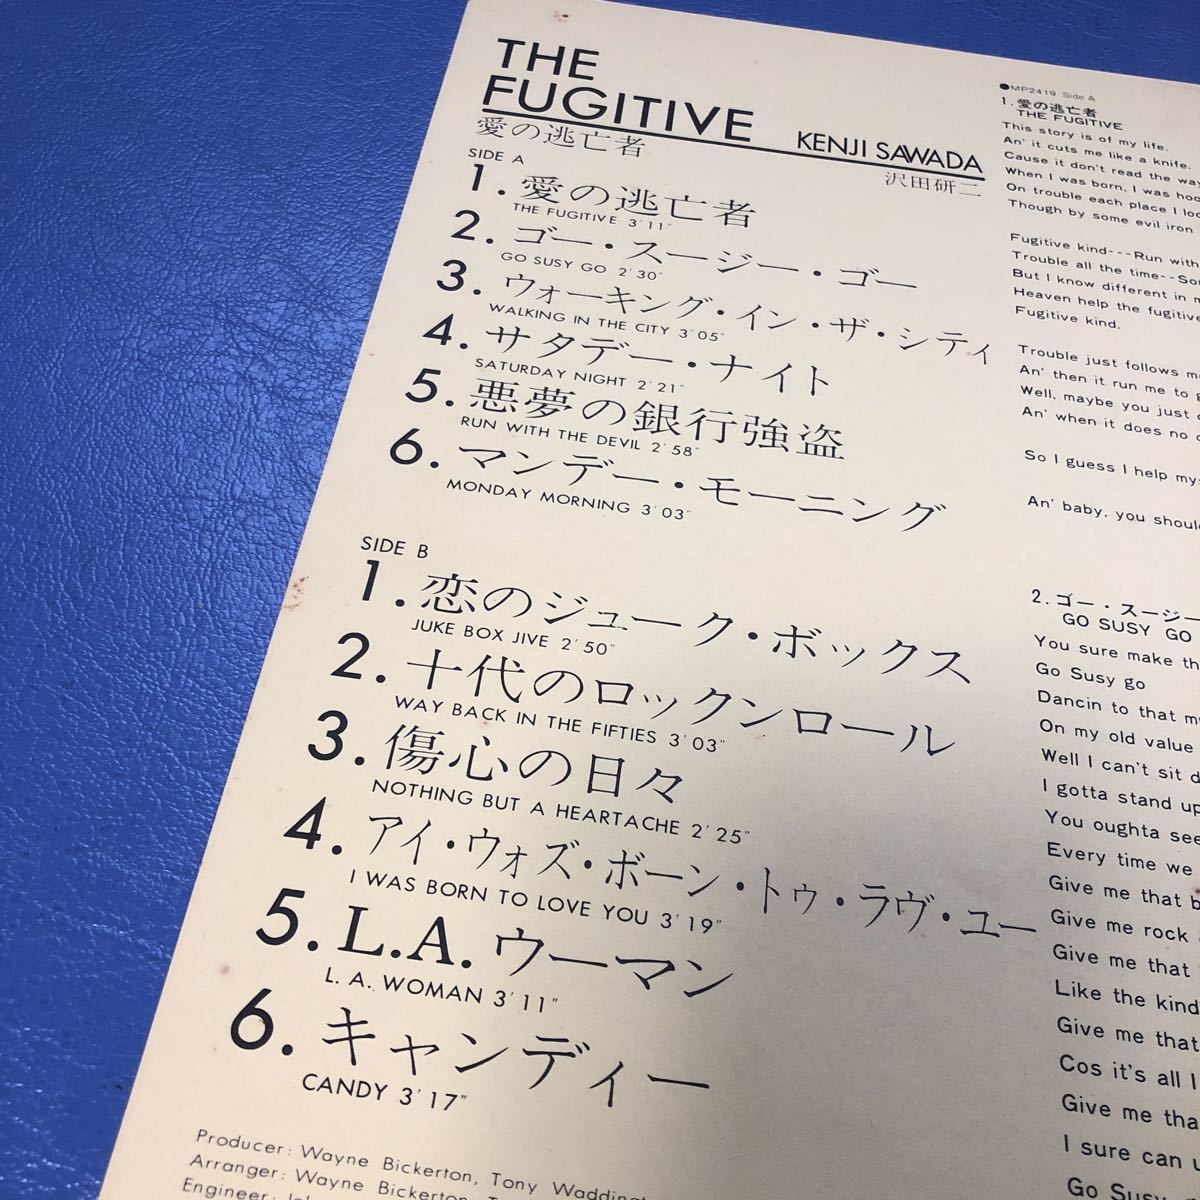 THE
FUGITIVE
KENJI SAWADA
愛の逃亡者
沢田研二
SIDE A
1. 愛の逃亡者
THE FUGITIVE 3'11"
2. ゴー・スージー・ゴー
GO SUSY GO 2'30"
3. ウォーキング・イン・ザ・シティ
WALKING IN THE CITY 3'05"
4. サタデー・ナイト
SATURDAY NIGHT 2'21"
5. 悪夢の銀行強盗
RUN WITH THE DEVIL 2'58"
6. マンデー・モーニング
MONDAY MORNING 3'03"
SIDE B
1. 恋のジューク・ボックス
JUKE BOX JIVE 2'50"
2. 十代のロックンロール
WAY BACK IN THE FIFTIES 3'03"
3. 傷心の日々
NOTHING BUT A HEARTACHE 2'25"
4. アイ・ウォズ・ボーン・トゥ・ラヴ・ユー
I WAS BORN TO LOVE YOU 3'19"
5. L.A.ウーマン
L. A. WOMAN 3'11"
6. キャンディー
CANDY 3'17"
Producer: Wayne Bickerton, Tony
Arranger: Wayne Bickerton,
Engineer:
●MP2419 Side A
1. 愛の逃亡者
THE FUGITIVE
This story is of my life.
An' it cuts me like a knife.
Cause it don't read the way
When I was born, I was
On trouble each place I
Though by some evil iron
Fugitive kind---Run with
Trouble all the time--
But I know different in
Heaven help the fugitive
Fugitive kind.
Trouble just follows
An' then it run me to
Well, maybe you just
An' when it does no
So I guess I help
An' baby, you
2. ゴー・スージー
GO SUSY GO
You sure make
Go Susy go
Dancin to that
On my old value
Well I can't sit
I gotta stand up
You oughta see
Every time we
Give me that
Give me rock
Give me that
Like the kind
Give me that
Cos it's all I
Give me
I sure can
Go Susy